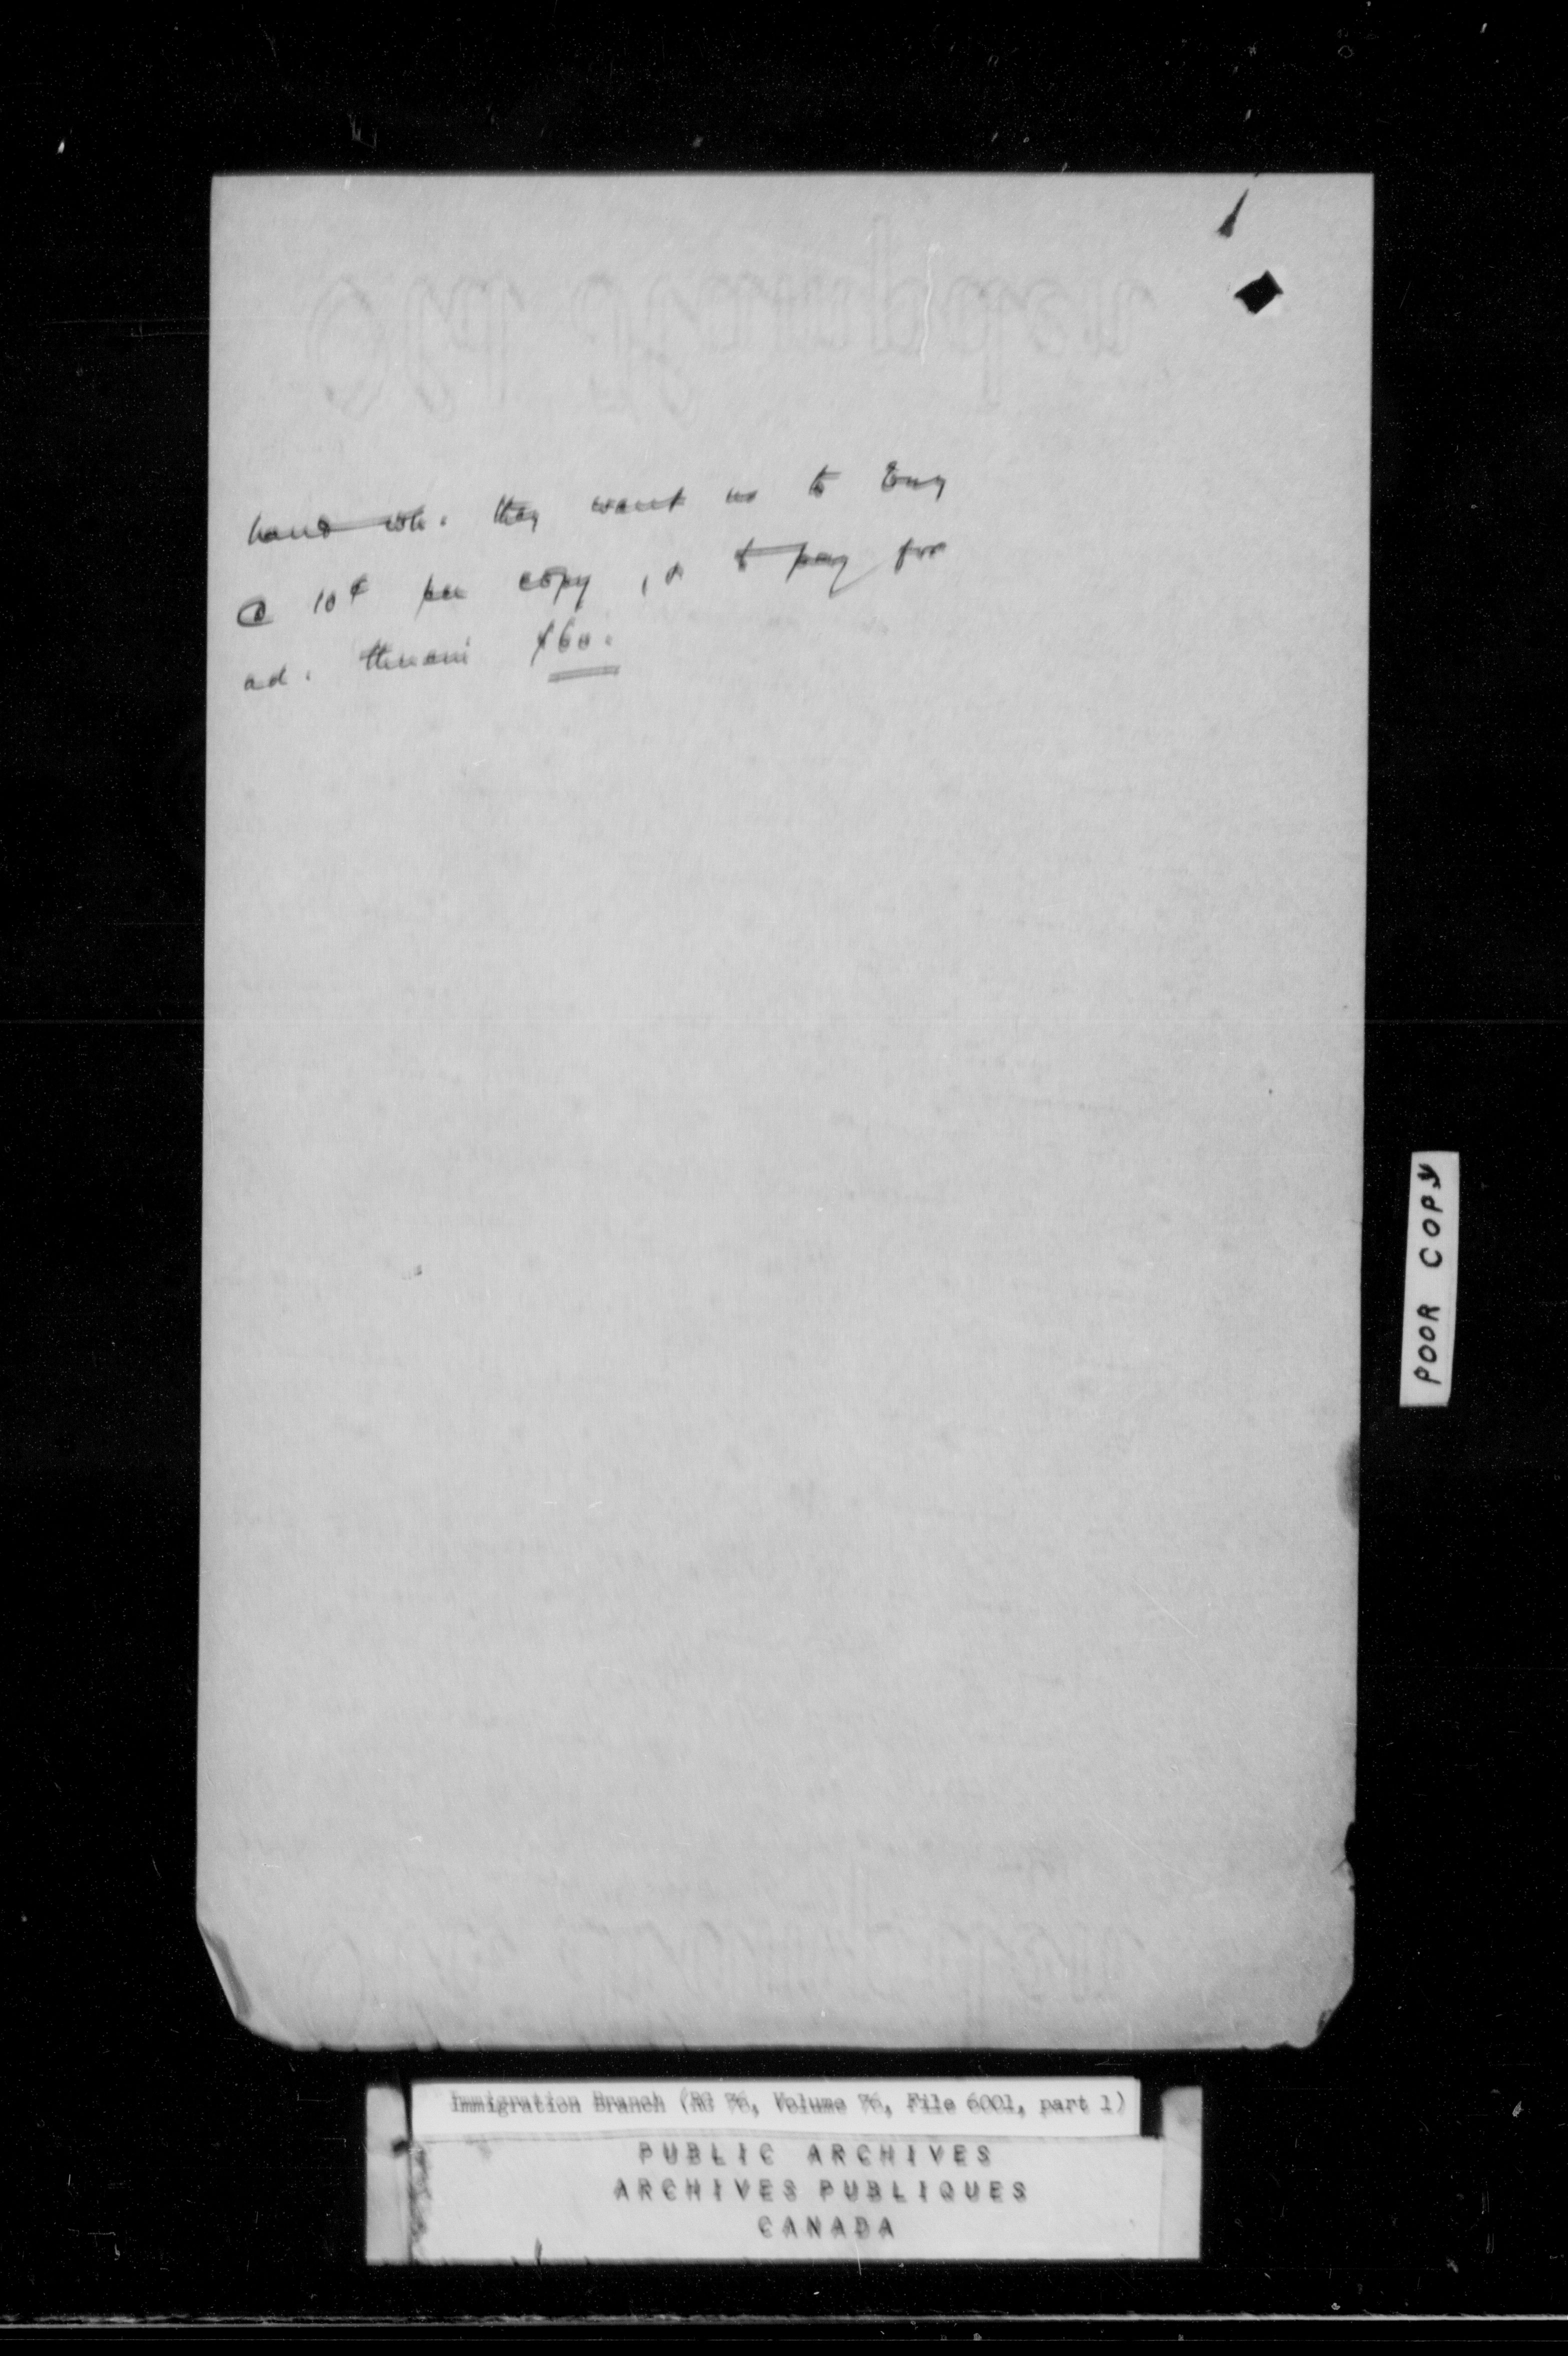 hand wh. they want us to buy
@ 10¢ per copy, or to pay for
ad. therein $60.
POOR COPY
Immigration Branch (RG 76, Volume 76, File 6001, part 1)
PUBLIC ARCHIVES
ARCHIVES PUBLIQUES
CANADA